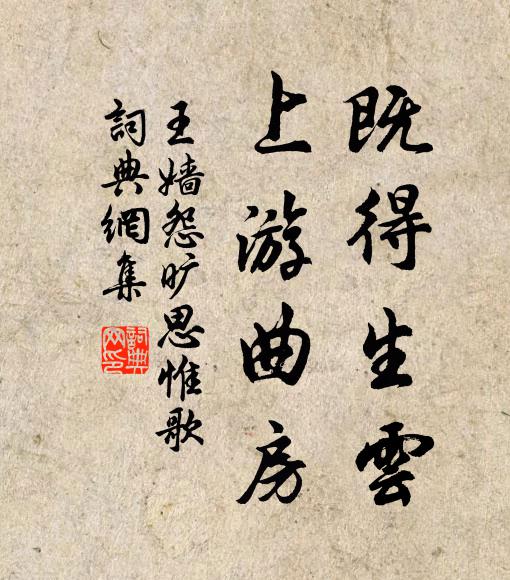 既得生雲
上游曲房
王嫱怨旷思惟歌
詞典網集
詞典网印